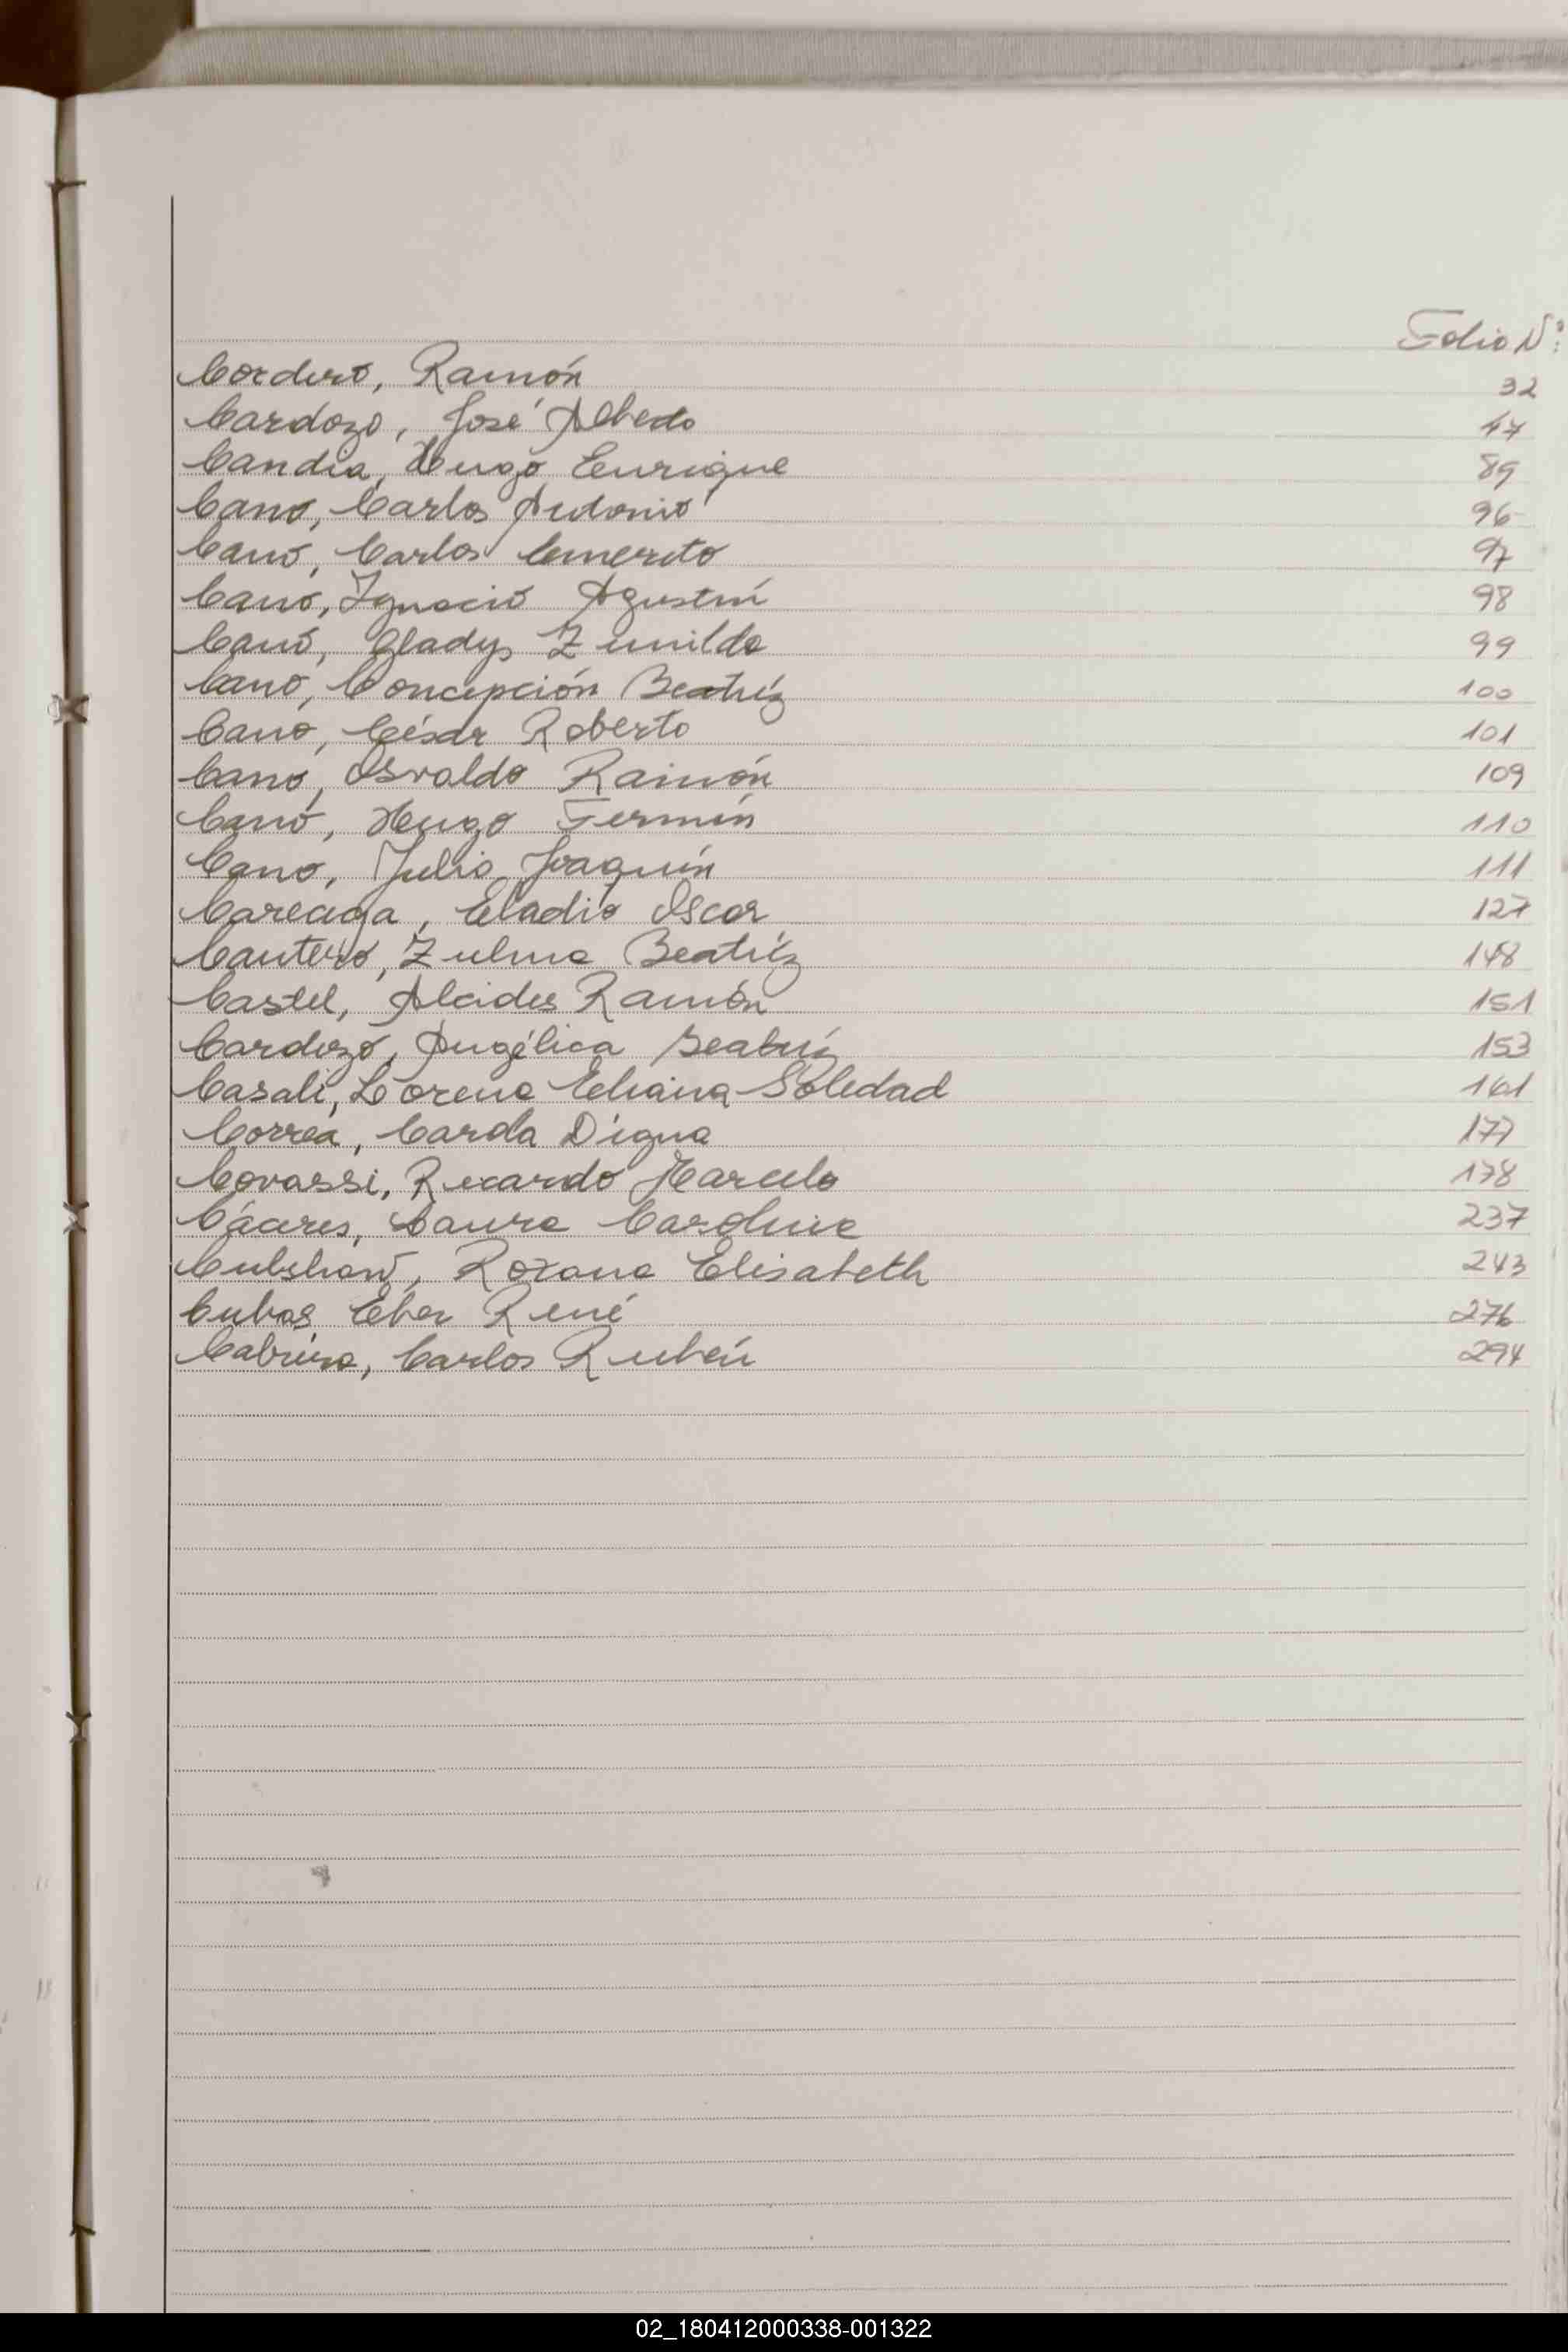 Folio Nº:
Cordero, Ramón 32
Cardozo, José Alberto 47
Candia, Hugo Enrique 89
Cano, Carlos Antonio 96
Cano, Carlos Emerito 97
Cano, Ignacio Agustín 98
Cano, Gladys Zunilda 99
Cano, Concepción Beatríz 100
Cano, César Roberto 101
Cano, Osvaldo Ramón 109
Cano, Hugo Fermín 110
Cano, Julio Joaquín 111
Careaga, Eladio Oscar 127
Cantero, Zulma Beatríz 148
Castel, Alcides Ramón 151
Cardozo, Angélica Beatríz 153
Casali, Lorena Eliana Soledad 161
Correa, Carola Digna 177
Covassi, Ricardo Marcelo 178
Cáceres, Laura Carolina 237
Roxana Elisabeth 243
Cubas Eber René 276
Cabrera, Carlos Rubén 294
02_180412000338-001322